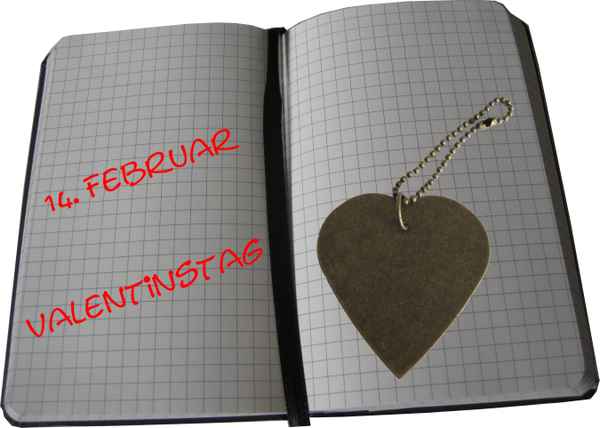 14. FEBRUAR
VALENTiNSTAG